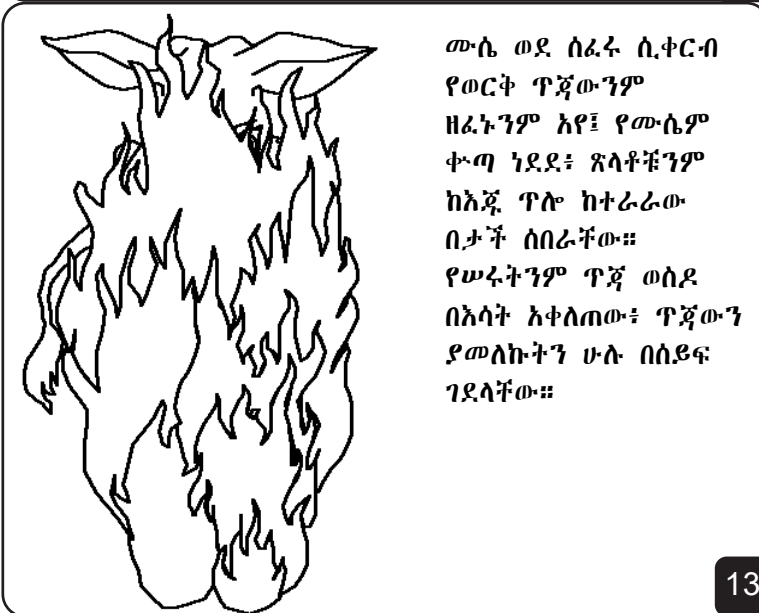 ሙሴ ወደ ሰፈሩ ሲቀርብ
የወርቅ ጥጃውንም
ዘፈኑንም አየ፤ የሙሴም
ቍጣ ነደደ፥ ጽላቶቹንም
ከእጁ ጥሎ ከተራራው
በታች ሰበራቸው።
የሠሩትንም ጥጃ ወስዶ
በእሳት አቀለጠው፥ ጥጃውን
ያመለኩትን ሁሉ በሰይፍ
ገደላቸው።
13